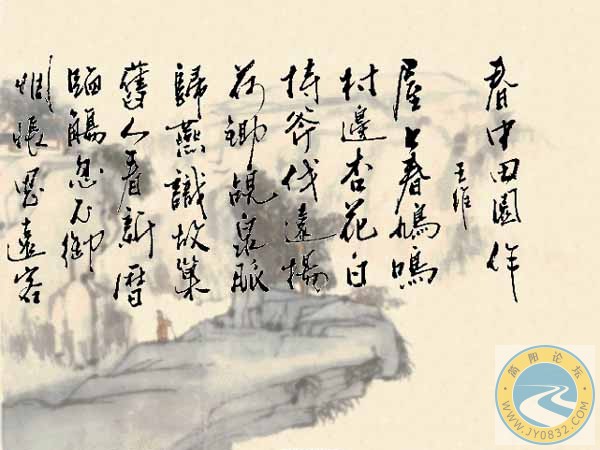 春中田園作
王維
屋上春鳩鳴
村邊杏花白
持斧伐遠揚
荷鋤覘泉脈
歸燕識故巢
舊人看新曆
臨觴忽不御
惆悵思遠客
简阳论坛
WWW.JY0832.COM